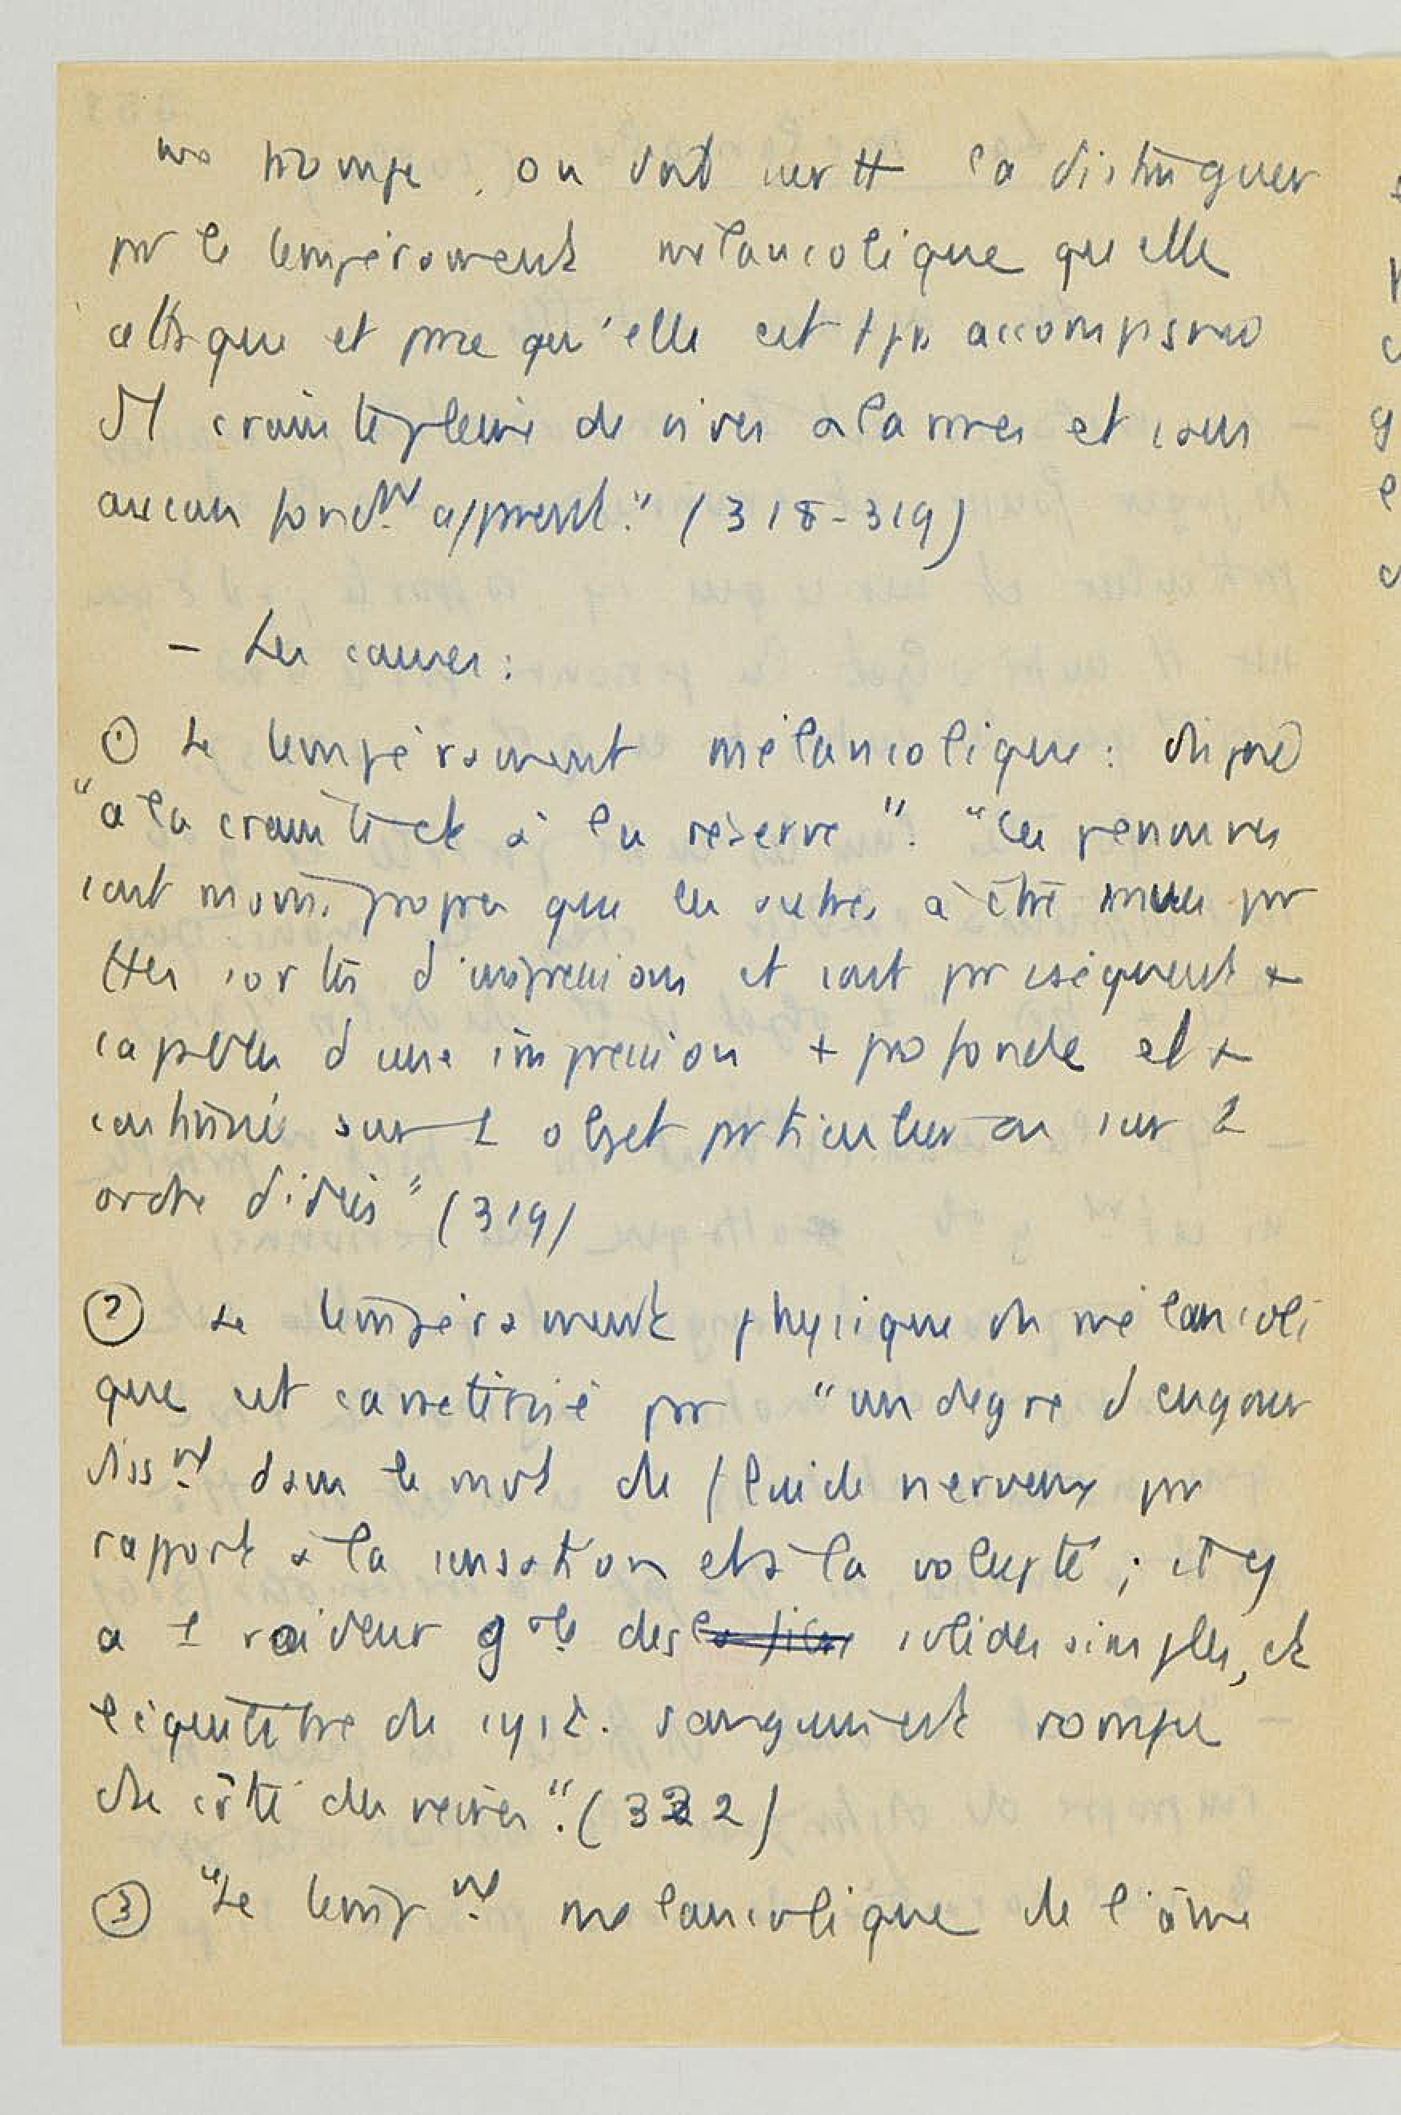 me trompe, on doit surtt la distinguer
pr le tempérament mélancolique qu elle
attaque et prce qu'elle est tjrs accompagnée
de crainte pleine de vives alarmes et sans
aucun fondnt apprent." (318-319)
- Les causes :
① Le tempérament mélancolique : disposé
"à la crainte et à la réserve". "Ces personnes
sont moins propres que les autres à être mues pr
ttes sortes d'impressions et sont pr iséquent +
capables d'une impression + profonde et +
continué sur 1 objet prticulier ou sur 1
ordre d'idées" (319)
② Le tempérament physique du mélancoli
que est caractérisé pr "un degré d'engour
dissnt dans le mvt du fluide nerveux pr
rapport à la sensation et à la volupté ; il y
a 1 raideur gale des solides simples, et
l'équilibre du syst. sanguin est rompu
du côté des veines". (322)
③ "Le tempnt mélancolique de l'âme